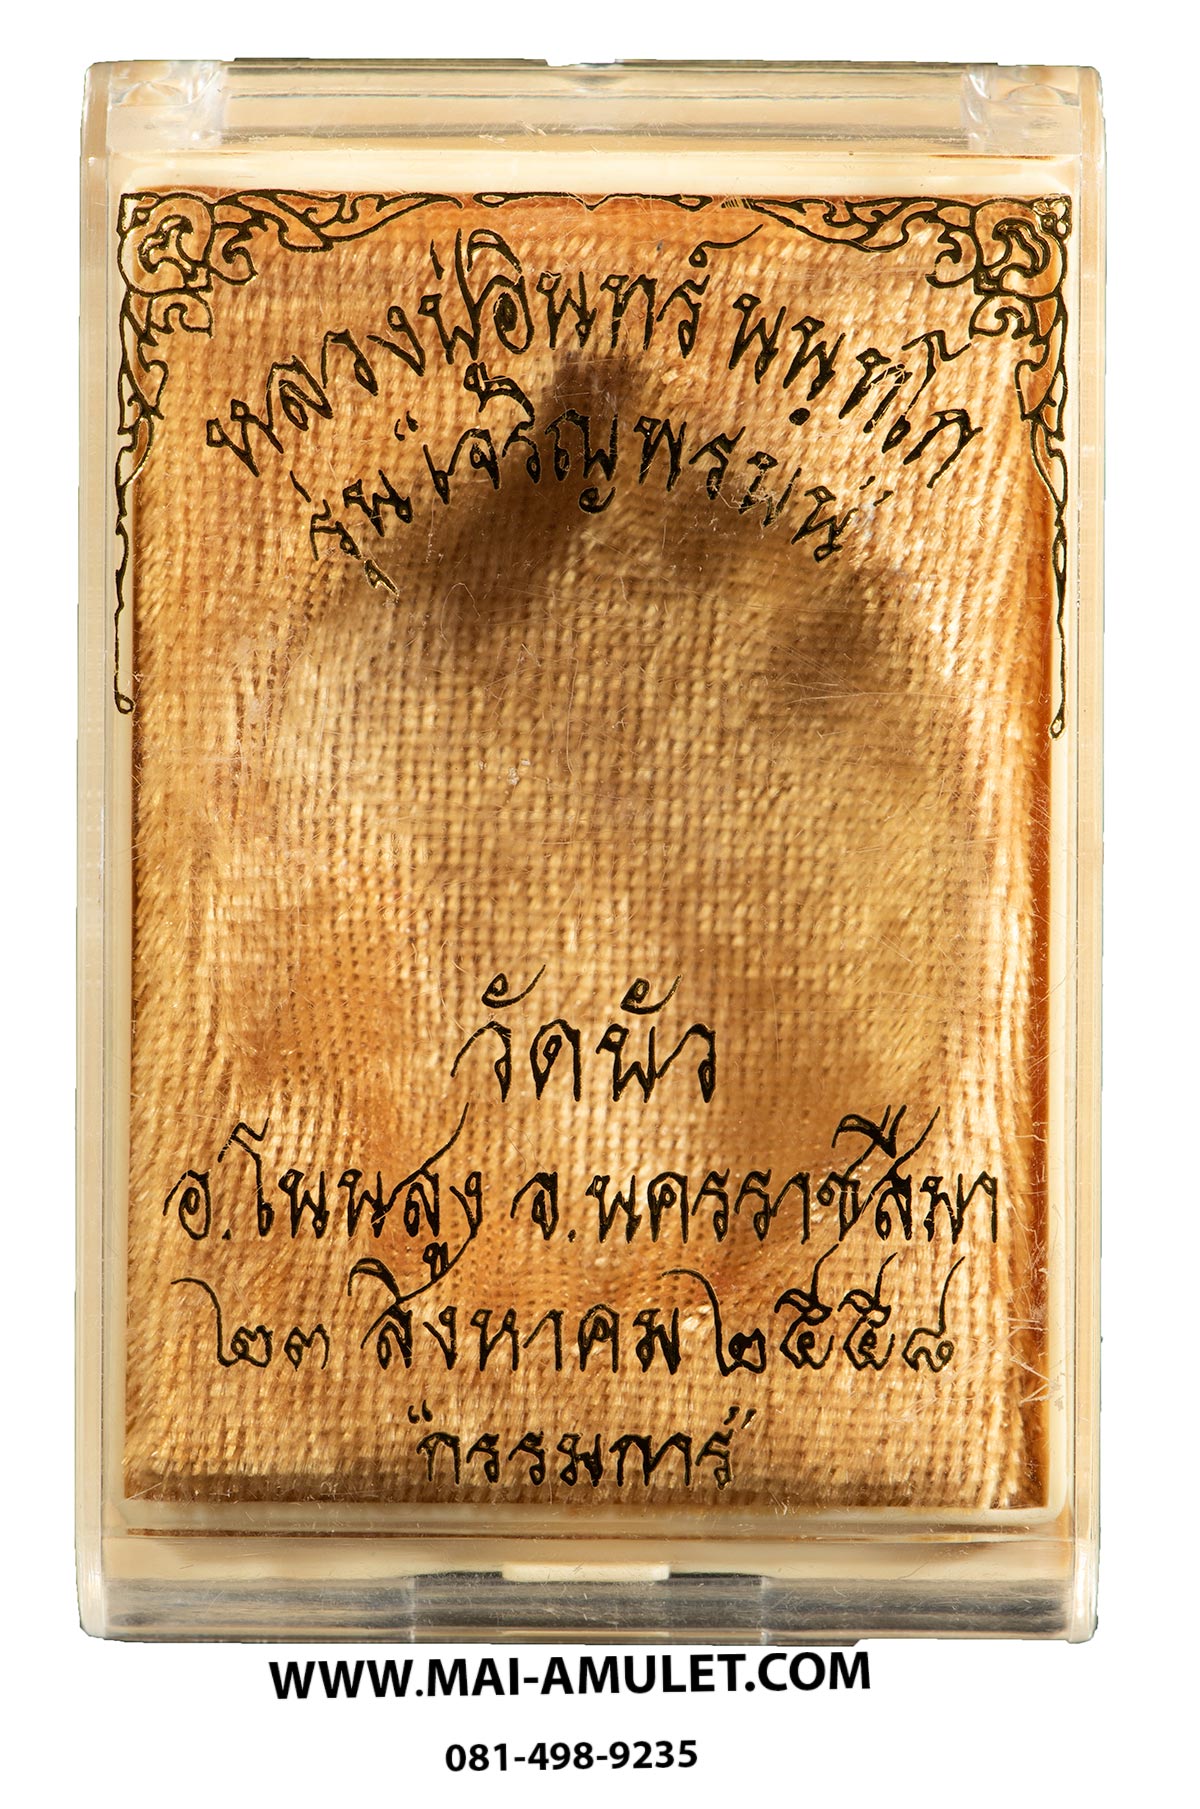 หลวงพ่ออินทร์ พฺพฺทโก
รุ่น “เจริญพรบน”
วัดบัว
อ.โนนสูง จ.นครราชสีมา
๒๓ สิงหาคม ๒๕๕๘
“กรรมการ”
WWW.MAI-AMULET.COM
081-498-9235